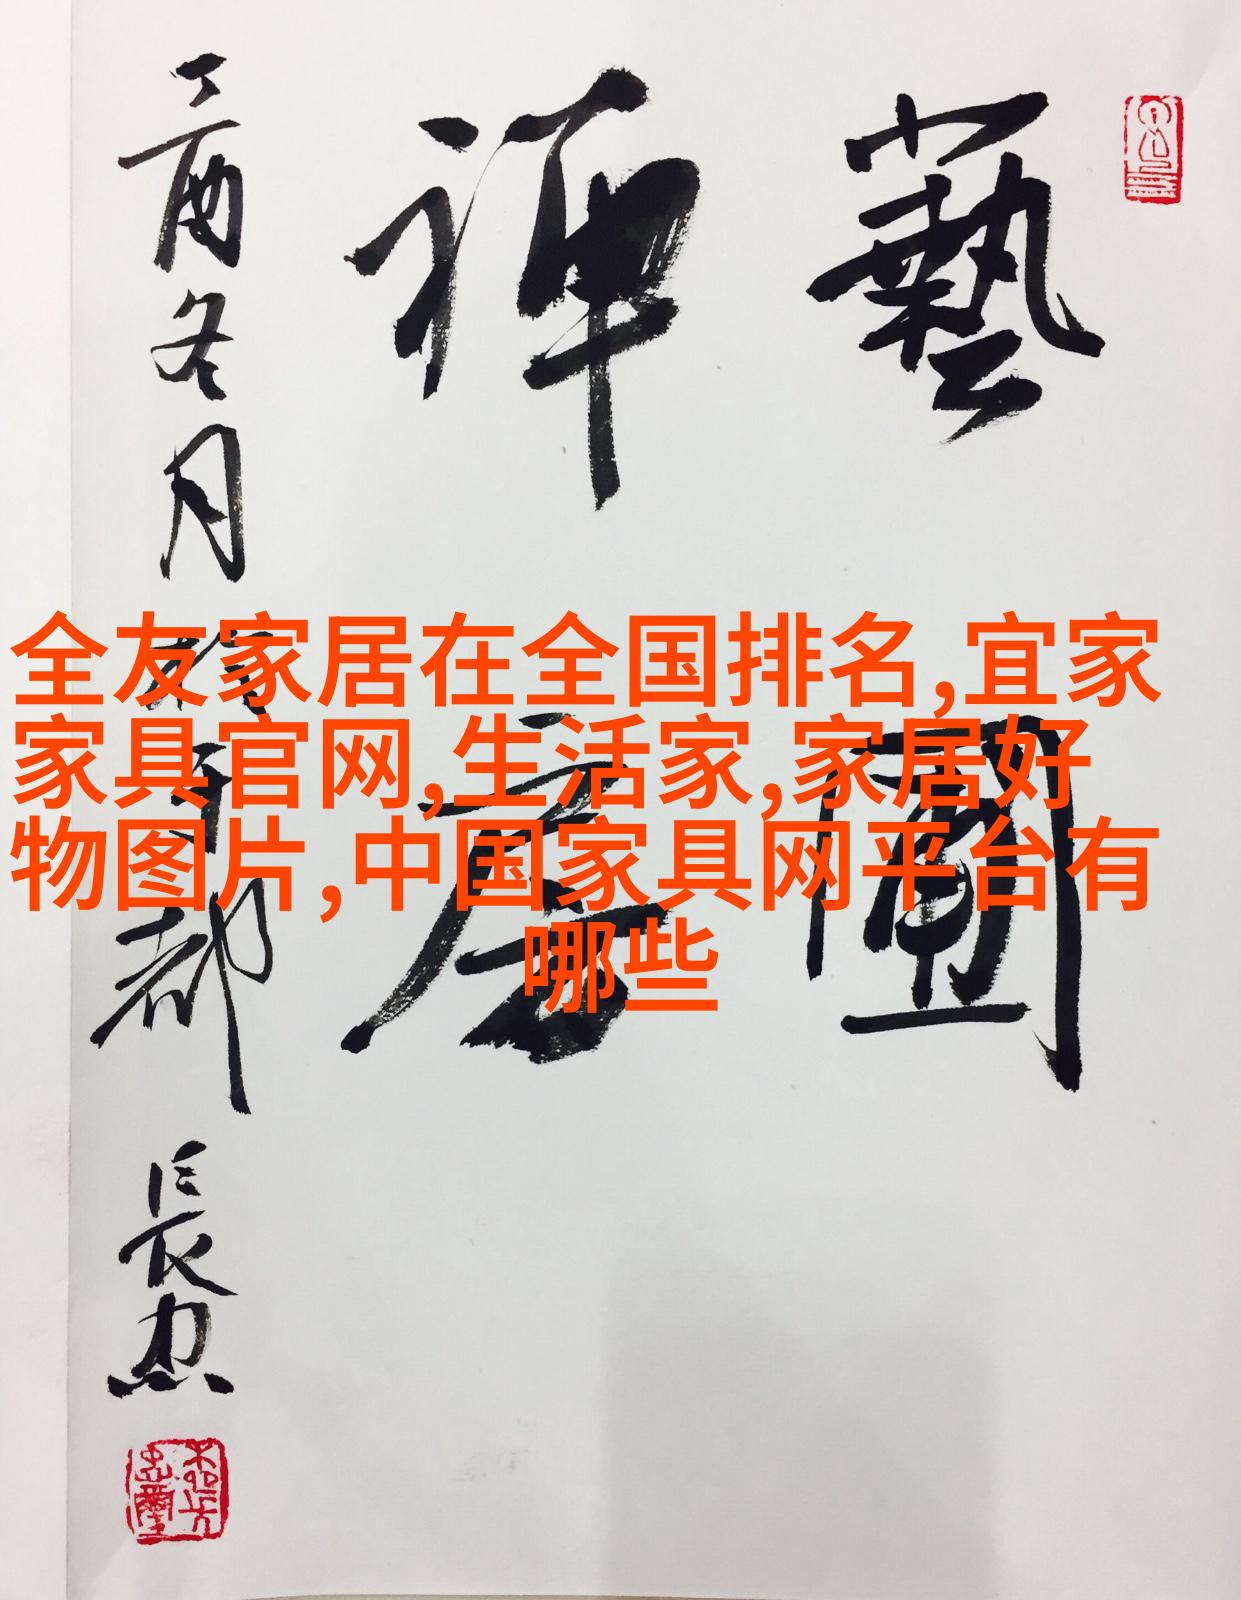 藝圃
禪房
丁酉冬月
都
長忠
全友家居在全国排名,宜家
家具官网,生活家,家居好
物图片,中国家具网平台有
哪些